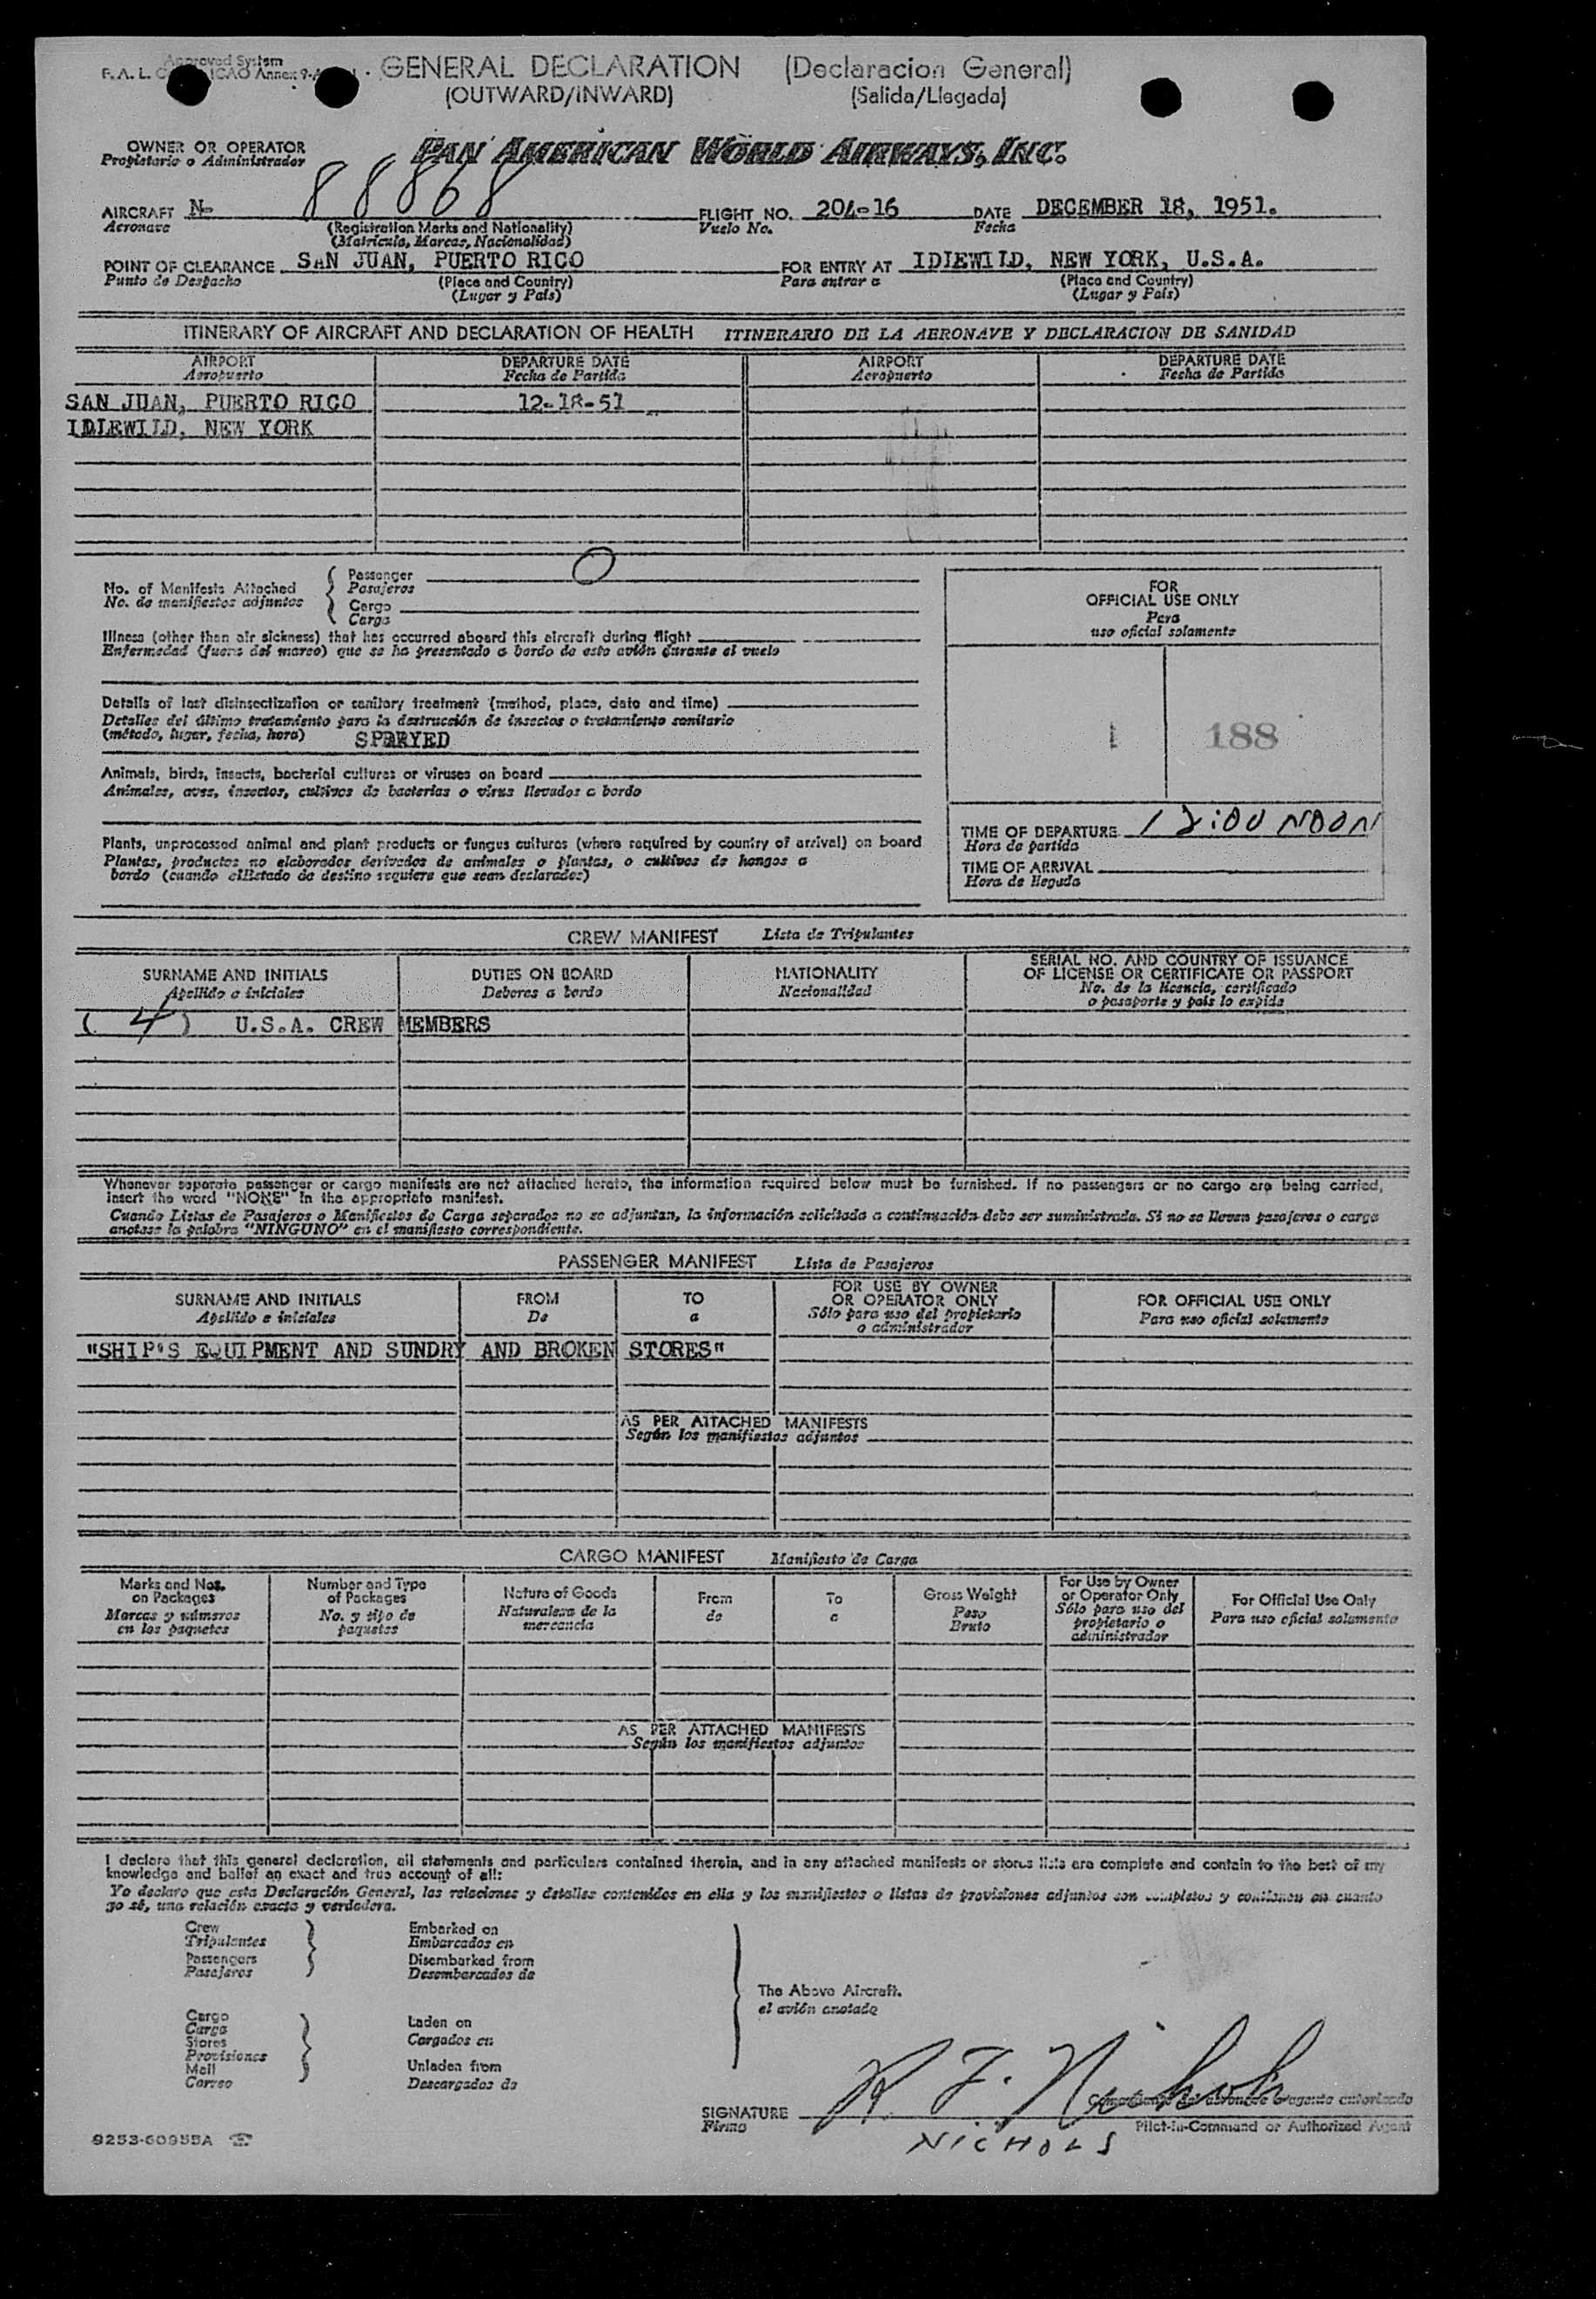 Approved System
F. A. L. ICAO Annex 9-
GENERAL DECLARATION (Declaracion General)
(OUTWARD/INWARD) (Salida/Llegada)
OWNER OR OPERATOR PAN AMERICAN WORLD AIRWAYS, INC.
Propietario o Administrador
AIRCRAFT N- 88868 FLIGHT NO. 204-16 DATE DECEMBER 18, 1951.
Aeronave (Registration Marks and Nationality) Vuelo No. Fecha
(Matricula, Marcas, Nacionalidad)
POINT OF CLEARANCE SAN JUAN, PUERTO RICO FOR ENTRY AT IDLEWILD, NEW YORK, U.S.A.
Punto de Despacho (Place and Country) Para entrar a (Place and Country)
(Lugar y País) (Lugar y País)
ITINERARY OF AIRCRAFT AND DECLARATION OF HEALTH ITINERARIO DE LA AERONAVE Y DECLARACION DE SANIDAD
AIRPORT DEPARTURE DATE AIRPORT DEPARTURE DATE
Aeropuerto Fecha de Partida Aeropuerto Fecha de Partida
SAN JUAN, PUERTO RICO 12-18-51
IDLEWILD, NEW YORK
No. of Manifests Attached { Passenger 0
No. de manifiestos adjuntos Pasajeros
Cargo
Carga
Illness (other than air sickness) that has occurred aboard this aircraft during flight
Enfermedad (fuera del mareo) que se ha presentado a bordo de este avión durante el vuelo
Details of last disinsectization or sanitary treatment (method, place, date and time)
Detalles del último tratamiento para la destrucción de insectos o tratamiento sanitario
(método, lugar, fecha, hora) SPRAYED
Animals, birds, insects, bacterial cultures or viruses on board
Animales, aves, insectos, cultivos de bacterias o virus llevados a bordo
Plants, unprocessed animal and plant products or fungus cultures (where required by country of arrival) on board
Plantas, productos no elaborados derivados de animales o plantas, o cultivos de hongos a
bordo (cuando elEstado de destino requiera que sean declarados)
FOR
OFFICIAL USE ONLY
Para
uso oficial solamente
1 188
TIME OF DEPARTURE 12:00 NOON
Hora de partida
TIME OF ARRIVAL
Hora de llegada
CREW MANIFEST Lista de Tripulantes
SURNAME AND INITIALS DUTIES ON BOARD NATIONALITY SERIAL NO. AND COUNTRY OF ISSUANCE
OF LICENSE OR CERTIFICATE OR PASSPORT
Apellido e iniciales Deberes a bordo Nacionalidad No. de la licencia, certificado
o pasaporte y país lo expide
( 4 ) U.S.A. CREW MEMBERS
Whenever separate passenger or cargo manifests are not attached hereto, the information required below must be furnished. If no passengers or no cargo are being carried,
insert the word "NONE" in the appropriate manifest.
Cuando Listas de Pasajeros o Manifiestos de Carga separados no se adjuntan, la información solicitada a continuación debe ser suministrada. Si no se llevan pasajeros o carga
anotese la palabra "NINGUNO" en el manifiesto correspondiente.
PASSENGER MANIFEST Lista de Pasajeros
SURNAME AND INITIALS FROM TO FOR USE BY OWNER
OR OPERATOR ONLY FOR OFFICIAL USE ONLY
Apellido e iniciales De a Sólo para uso del propietario
o administrador Para uso oficial solamente
"SHIP'S EQUIPMENT AND SUNDRY AND BROKEN STORES"
AS PER ATTACHED MANIFESTS
Según los manifiestos adjuntos
CARGO MANIFEST Manifiesto de Carga
Marks and Nos.
on Packages
Marcas y números
en los paquetes
Number and Type
of Packages
No. y tipo de
paquetes
Nature of Goods
Naturaleza de la
mercancía
From
de
To
a
Gross Weight
Peso
Bruto
For Use by Owner
or Operator Only
Sólo para uso del
propietario o
administrador
For Official Use Only
Para uso oficial solamente
AS PER ATTACHED MANIFESTS
Según los manifiestos adjuntos
I declare that this general declaration, all statements and particulars contained therein, and in any attached manifests or stores lists are complete and contain to the best of my
knowledge and belief an exact and true account of all:
Yo declaro que esta Declaración General, las relaciones y detalles contenidos en ella y los manifiestos o listas de provisiones adjuntos son completos y contienen en cuanto
yo sé, una relación exacta y verdadera.
Crew
Tripulantes
Passengers
Pasajeros
Embarked on
Embarcados en
Disembarked from
Desembarcados de
Cargo
Carga
Stores
Provisiones
Mail
Correo
Laden on
Cargados en
Unladen from
Descargados de
The Above Aircraft.
el avión anotado
SIGNATURE R. F. Nichols
Firma NICHOLS
agente autorizado
Pilot-in-Command or Authorized Agent
9253-60955A